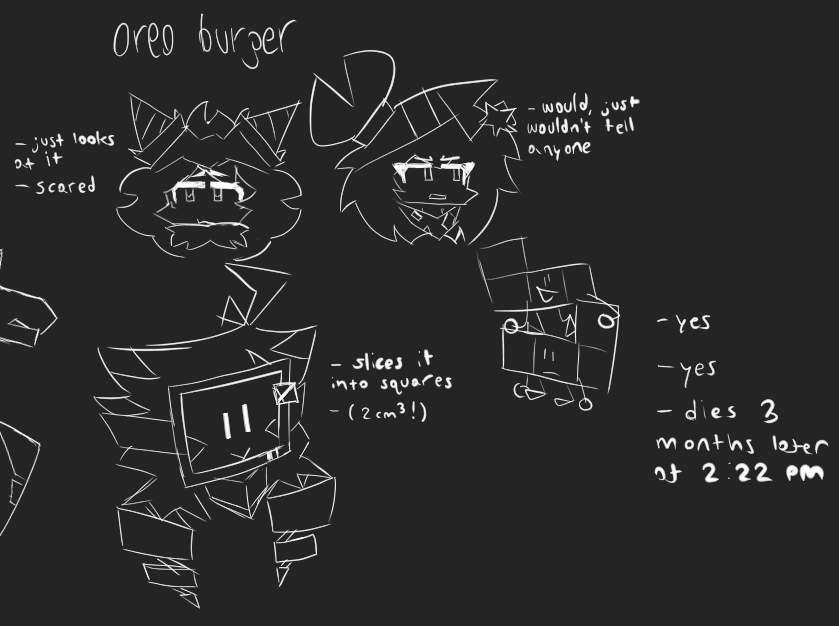 oreo burger
- just looks
at it
- scared
- would, just
wouldn't tell
anyone
- slices it
into squares
- (2cm³!)
- yes
- yes
- dies 3
months later
at 2:22 pm